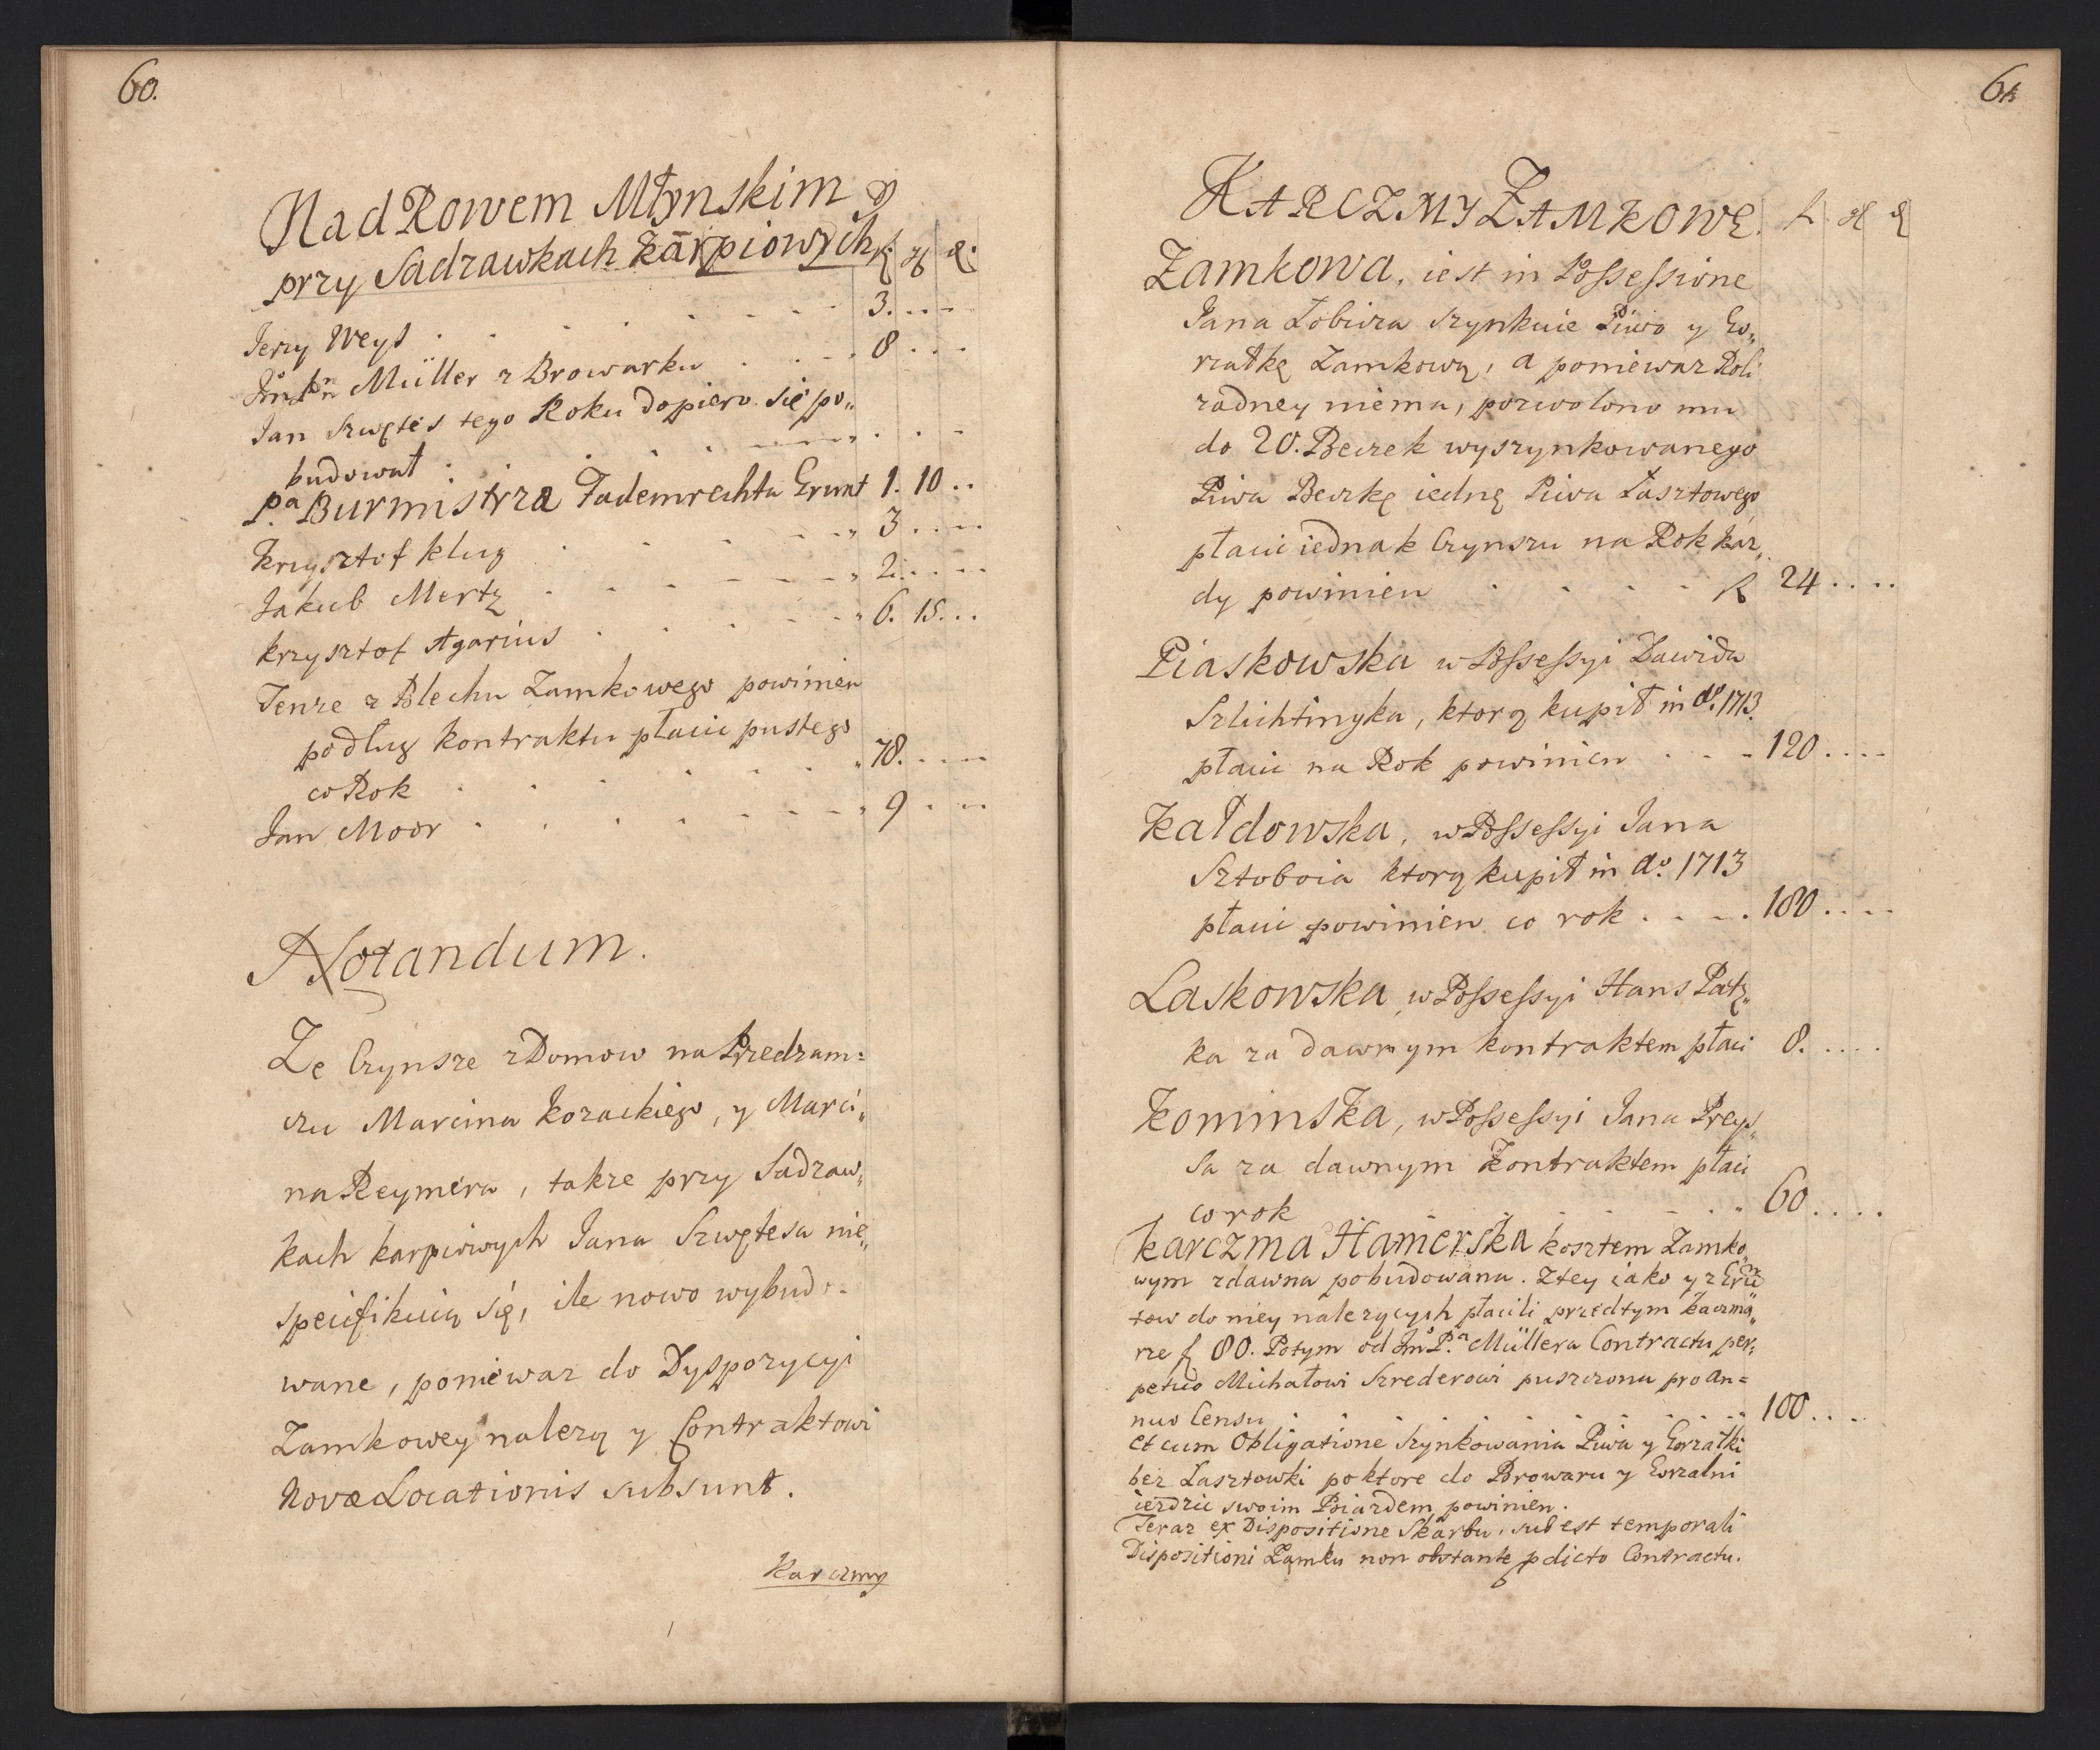 60.
Nad Rowem Młynskim y
przy Sadzawkach Karpiowych f. gr d.
Jerzy Weys . . . . . . . 3. . . . .
Jmć Pn Müller z Browarku . . . . 8 . . .
Jan Szwętes tego Roku dopiero się po„
budował . . . . . . . . .
P.a Burmistrza Fademrechta Grunt 1. 10 . .
Krzysztof Klug . . . . . „ 3 . . . .
Jakub Mertz . . . . . . „ 2. . . . .
Krzysztof Agarius . . . . . „ 6. 15. . .
Tenze z Blechu Zamkowego powinien
podług kontraktu płacic pustego
co Rok . . . . . . „ 78. . . . .
Jan Moor . . . . . . . „ 9 . . .
Notandum.
Ze Czynsze z Domow na Przedzam=
czu Marcina Kozackiego, y Marci„
na Reymera, takze przy Sadzaw„
kach karpiowych Jana Szwętesa nie„
specifikuią się, ile nowo wybudo=
wane, poniewaz do Dyspozycyi
Zamkowey nalezą y Contraktowi
Novæ Locationis subsunt.
Karczmy
61
KARCZMY ZAMKOWE. f. gr d
Zamkowa, iest in Possessione
Jana Lobiura szynkuie Piwo y Go„
rzałkę Zamkową, a poniewaz Roli
zadney niema, pozwolono mu
do 20. Beczek wyszynkowanego
Piwa Beczkę iednę Piwa Tasztowego
płacic iednak Czynszu na Rok kaz„
dy powinien . . . . . f 24 . . . .
Piaskowska w Possessyi Dawida
Szlichtingka, ktorą kupił in Ao. 1713.
płacic na Rok powinien . . . 120 . . . .
Kałdowska, w Possessyi Jana
Sztoboia ktorą kupił in Ao. 1713
płaci powinien co rok . . . . 180 . . . .
Laskowska, w Possessyi Hans Patz„
ka za dawnym kontraktem płaci 8. . . . .
Kominska, w Possessyi Jana Preys„
sa za dawnym Kontraktem płaci
co rok . . . . . . „ 60 . . . .
Karczma Hamerska kosztem Zamko„
wym zdawna pobudowana. Z tey iako y z Grũ
tow do niey nalezących płacili przedtym Kaczma„
rze f 80. Potym od Jmć P.a Müllera Contractu per„
petuo Michałowi Szrederowi puszczona pro An=
nuo Censu . . . . . . . . . 100 . . . .
et cum Obligatione Szynkowania Piwa y Gorzałki
bez Lasztowki po ktore do Browaru y Gorzalni
iezdzic swoim Poiazdem powinien.
Teraz ex Dispositione Skarbu, subest temporali
Dispositioni Zamku non obstante pdicto Contractu.